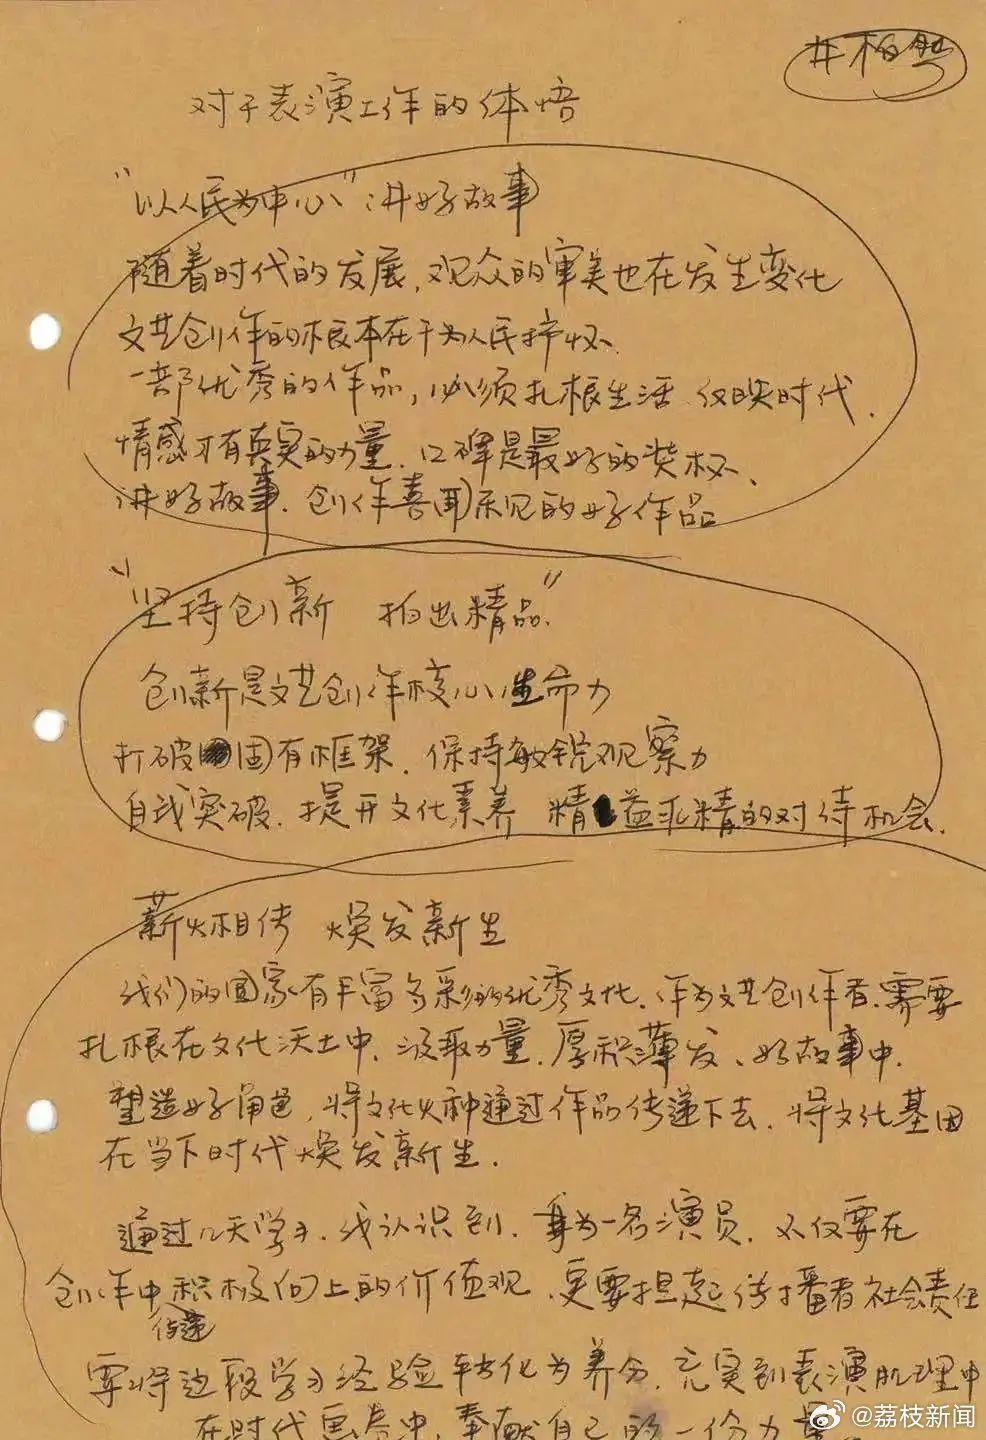 井柏然
对于表演工作的体悟
“以人民为中心”讲好故事
随着时代的发展,观众的审美也在发生变化
文艺创作的根本在于为人民抒怀、
一部优秀的作品,必须扎根生活、反映时代、
情感才有真实的力量、口碑是最好的奖杯、
讲好故事、创作喜闻乐见的好作品
“坚持创新 拍出精品”
创新是文艺创作核心生命力
打破固有框架、保持敏锐观察力
自我突破、提升文化素养 精益求精的对待机会、
薪火相传 焕发新生
我们的国家有丰富多彩的优秀文化、作为文艺创作者、需要
扎根在文化沃土中、汲取力量、厚积薄发、好故事中、
塑造好角色,将文化火种通过作品传递下去、将文化基因
在当下时代焕发新生、
通过几天学习、我认识到、身为一名演员、不仅要在
创作中传递积极向上的价值观、更要担起传播者社会责任
要将这段学习经验转化为养分、充实到表演肌理中
在时代画卷中,奉献自己的一份力量。
@荔枝新闻